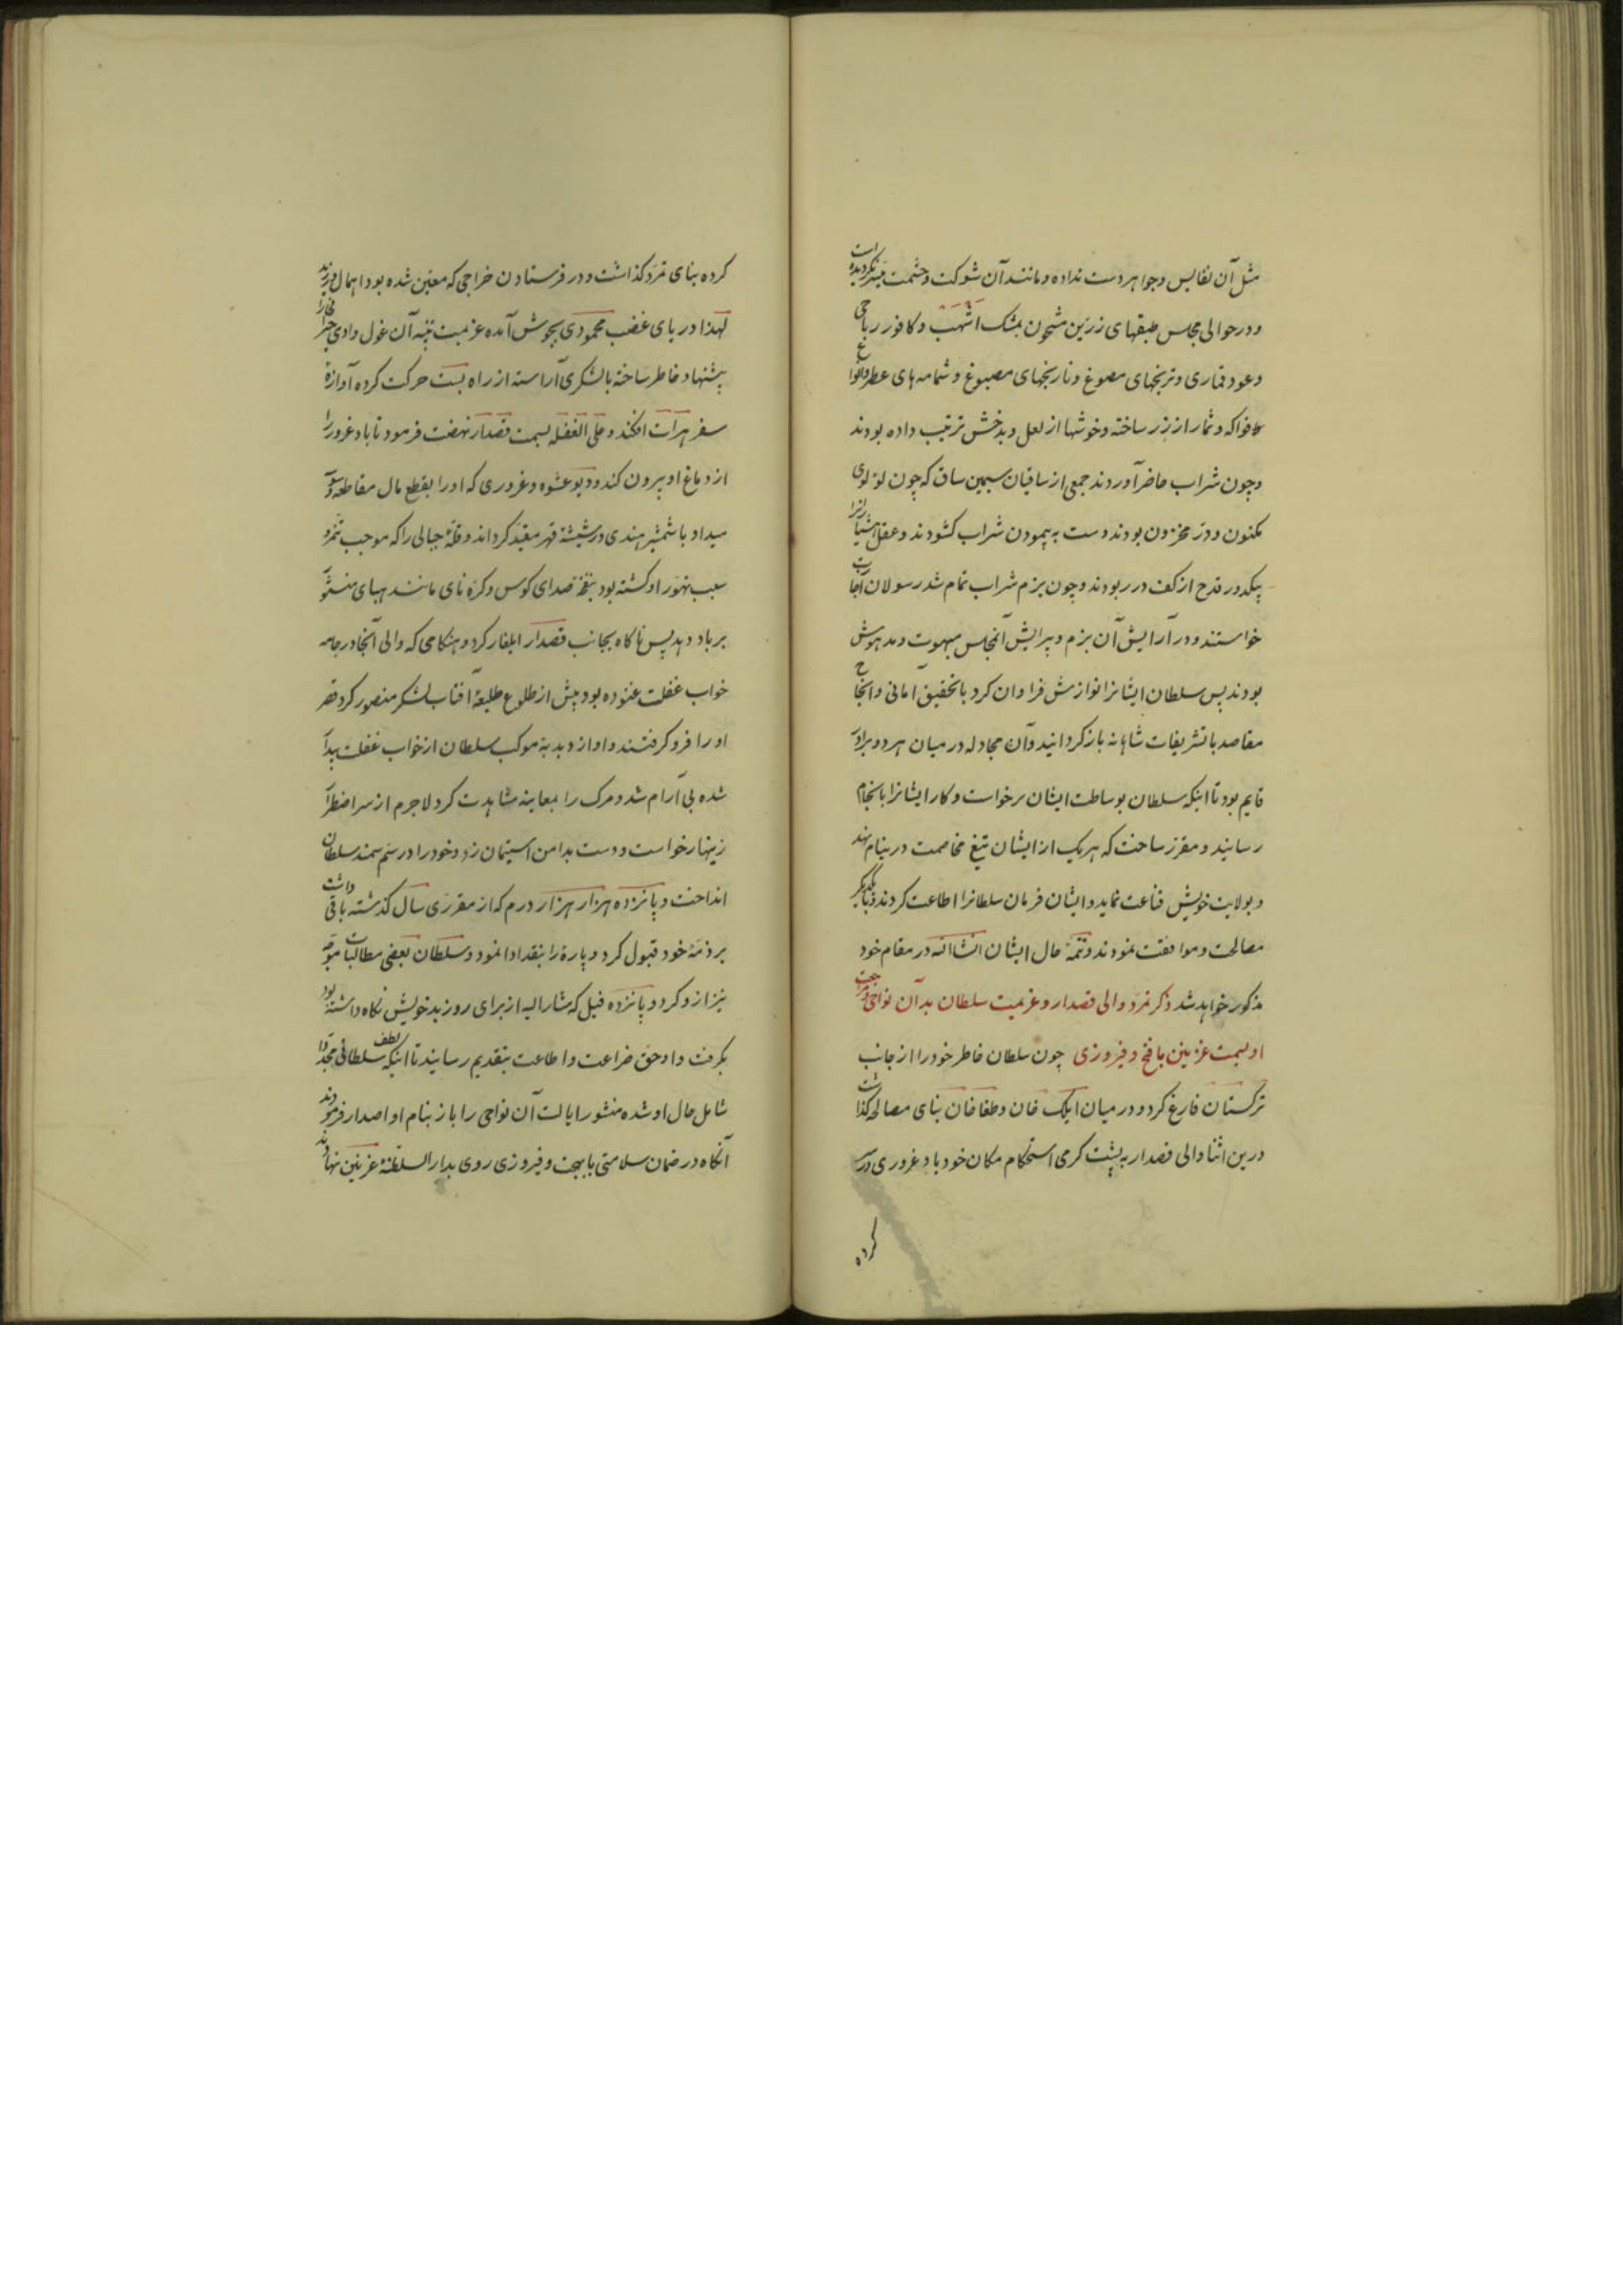 مثل آن نفایس و جواهر دست نداده و مانند آن شوکت و حشمت میسر نکردیده است
و در حوالی مجلس طبقهای زرین مشحون بمشک اشهب و کافور رباحی
و عود قماری و ترنجهای مصوغ و نارنجهای مصبوغ و شمامه های عطر و انواع
فواکه و ثمار از زر ساخته و خوشها از لعل و بدخش ترتیب داده بودند
و چون شراب حاضر آوردند جمعی از ساقیان سیمین ساق که چون لؤلوی
مکنون و در مخزون بودند دست به پیمودن شراب کشودند و عقل هشیارانرا
بیکدور قدح از کف در ربودند و چون بزم شراب تمام شد رسولان اجازت
خواستند و در آرایش آن بزم و پیرایش آنمجلس مبهوت و مدهوش
بودند پس سلطان ایشانرا نوازش فراوان کرد با تحقیق امانی و انجاح
مقاصد با تشریفات شاهانه باز کردانید و آن مجادله در میان هر دو برادر
قایم بود تا اینکه سلطان بوساطت ایشان برخواست و کار ایشانرا بانجام
رسانید و مقرر ساخت که هر یک از ایشان تیغ مخاصمت در نیام نهد
و بولایت خویش قناعت نماید و ایشان فرمان سلطانرا اطاعت کردند و با یکدیکر
مصالحت و موافقت نمودند و تتمهٔ حال ایشان انشاالله در مقام خود
مذکور خواهد شد ذکر تمرد والی قصدار و عزیمت سلطان بدآن نواحی و مراجعت
او بسمت غزنین با فتح و فیروزی چون سلطان خاطر خود را از جانب
ترکستان فارغ کرد و در میان ایلک خان و طغاخان بنای مصالحه کذاشت
درین اثنا والی قصدار به پشت کرمی استحکام مکان خود باد غروری در سر
کرده
کرده بنای تمرد کذاشت و در فرستادن خراجی که معین شده بود اهمال ورزید
لهذا دریای غضب محمودی بجوش آمده عزیمت تنبیه آن غول وادی
پیشنهاد خاطر ساخته با لشکری آراسته از راه بست حرکت کرده آوازهٔ
سفر هرات افکند و علی الغفله بسمت قصدار نهضت فرمود تا باد غرور را
از دماغ او بیرون کند و دیو عشوه و غروری که او را بقطع مال مقاطعه
میداد با شمشیر هندی در شیشهٔ قهر مقید کرداند و قلهٔ جبالی را که موجب تمرد و
سبب تهور او کشته بود بنفخهٔ صدای کوس و کره نای مانند هبای منثور
بر باد دهد پس ناکاه بجانب قصدار ایلغار کرد و هنکامی که والی آنجا در جامه
خواب غفلت غنوده بود پیش از طلوع طلیعهٔ افتاب لشکر منصور کرد قصر
او را فرو کرفتند و او از دبدبهٔ موکب سلطان از خواب غفلت بیدار
شده بی آرام شد و مرک را بمعاینه مشاهدت کرد لاجرم از سر اضطرار
زینهار خواست و دست بدامن استیمان زد و خود را در سم سمند سلطان
انداخت و پانزده هزار هزار درم که از مقرری سال کذشته باقی داشت
بر ذمهٔ خود قبول کرد و پارهٔ را بنقد ادا نمود و سلطان بعضی مطالبات
نیز ازو کرد و پانزده فیل که مشار الیه از برای روز بد خویش نکاه داشته بود
بکرفت و او حق ضراعت و اطاعت بتقدیم رسانید تا اینکه لطف سلطانی مجددا
شامل حال او شده منشور ایالت آن نواحی را باز بنام او اصدار فرمودند
آنکاه در ضمان سلامتی با بهجت و فیروزی روی بدار السلطنهٔ غزنین نهادند